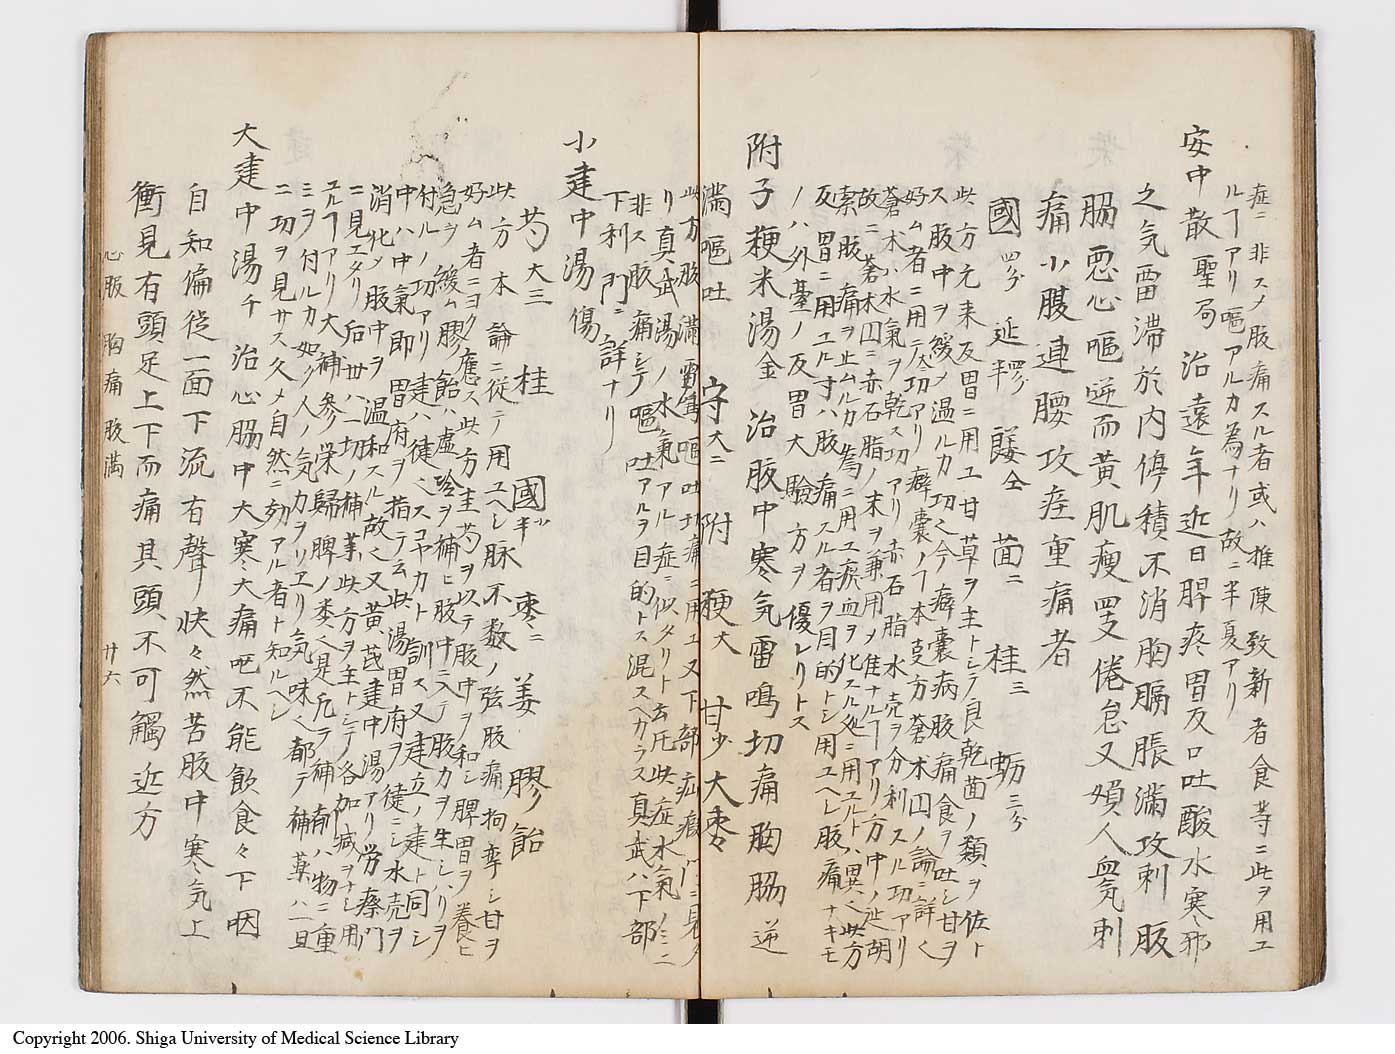 症ニ非スメ腹痛スル者或ハ推陳致新者食等ニ此ヲ用エ
ルヿアリ嘔アルカ為ナリ故ニ半夏アリ
安中散 聖局 治遠年近日脾疼胃反口吐酸水寒邪
之気留滞於内停積不消胸膈脹滿攻刺腹
脇悪心嘔逆而黄肌瘦四支倦怠又婦人血気刺
痛小腹連腰攻疰重痛者
國 四分 延 半 茴二 桂三 蛎 三分
此方元来反胃ニ用ユ甘草ヲ主トシテ良乾茴ノ類ヲ佐ト
ス腹中ヲ緩メ温ルカ功く今癖嚢病腹痛食ヲ吐シ甘ヲ
好ム者ニ用テ功アリ癖嚢ノヿ本方蒼木囚ノ論ニ詳く
蒼木ハ水氣ヲ乾ス功アリ赤石脂水売ヲ分利スル功アリ
故ニ蒼木囚ニ赤石脂ノ末ヲ兼用メ佳ナルヿアリ方中ノ延胡
索ハ腹痛ヲ止ムルカ為ニ用ユ瘀血ヲ化スル処ニ用ユルトハ異く此方
反胃ニ用ユル寸ハ腹痛スル者ヲ目的トシ用ユヘシ腹痛ナキモ
ノハ外臺ノ反胃大驗方ヲ優レリトス
附子粳米湯 金 治腹中寒気雷鳴切痛胸脇逆
滿嘔吐 守大二 附 粳大 甘少 大棗々
此方腹滿雷鳴嘔吐切痛ニ用ユ又下部疝瘕門ニ見タ
リ真武湯ノ水氣アル症ニ似タリト云圧此症水氣ノミニ
非ス腹痛シテ嘔吐アルヲ目的トス混スヘカラス真武ハ下部
下利門ニ詳ナリ
小建中湯 傷
芍大三 桂 國 半 棗二 姜 膠飴
此方本論ニ従テ用ユヘシ脉不数ノ弦腹痛拘挛シ甘ヲ
好ム者ニヨク應ス此方主芍ヲ以テ腹中ヲ和シ脾胃ヲ養ヒ
急ヲ緩ム膠飴ハ虚冷ヲ補ヒ腹中ニ入テ腹力ヲ生シハリヲ
付ルノ功アリ建ハ徒く訓ス又建立ノ建ト同シ
中ハ中氣即胃府ヲ指テ云此湯胃府ヲ徒ニシ水売ヲ
消化メ腹中ヲ温和スル故く又黄芪建中湯アリ労瘵門
ニ見エタリ后世ハ一切ノ補事此方ヲ主トシテ各加减ヲナシ用
ユルヿアリ大補參栄歸脾ノ类く是凡ラ補剤ハ物ニ重
ミヲ付ルカ如ク人ノ気力ヲリヱリ気味く都テ補薬ハ一旦
ニ功ヲ見サス久メ自然ニ効アル者ト知ルヘシ
大建中湯 千 治心脇中大寒大痛吧不能飲食々下咽
自知偏従一面下流有聲快々然苦腹中寒気上
衝見有頭足上下而痛其頭不可觸近方
心腹 胸痛腹滿 廿六
Copyright 2006. Shiga University of Medical Science Library